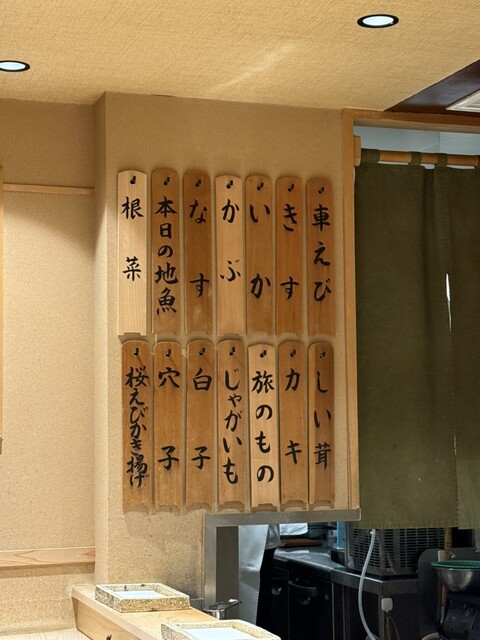 車えび
きす
いか
かぶ
なす
本日の地魚
根菜
しい茸
カキ
旅のもの
じゃがいも
白子
穴子
桜えびかき揚げ